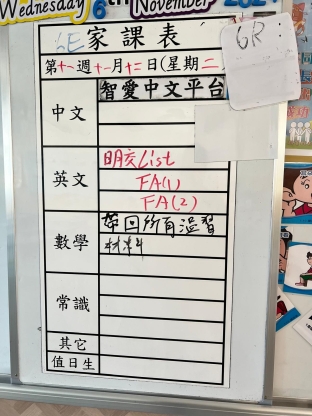 Wednesday 6th November 2024
6E 家課表
6R
第十一週 十一月十二日(星期二
中文
智愛中文平台
英文
明交List
FA(1)
FA(2)
數學
帶回所有溫習
材料
常識
其它
值日生